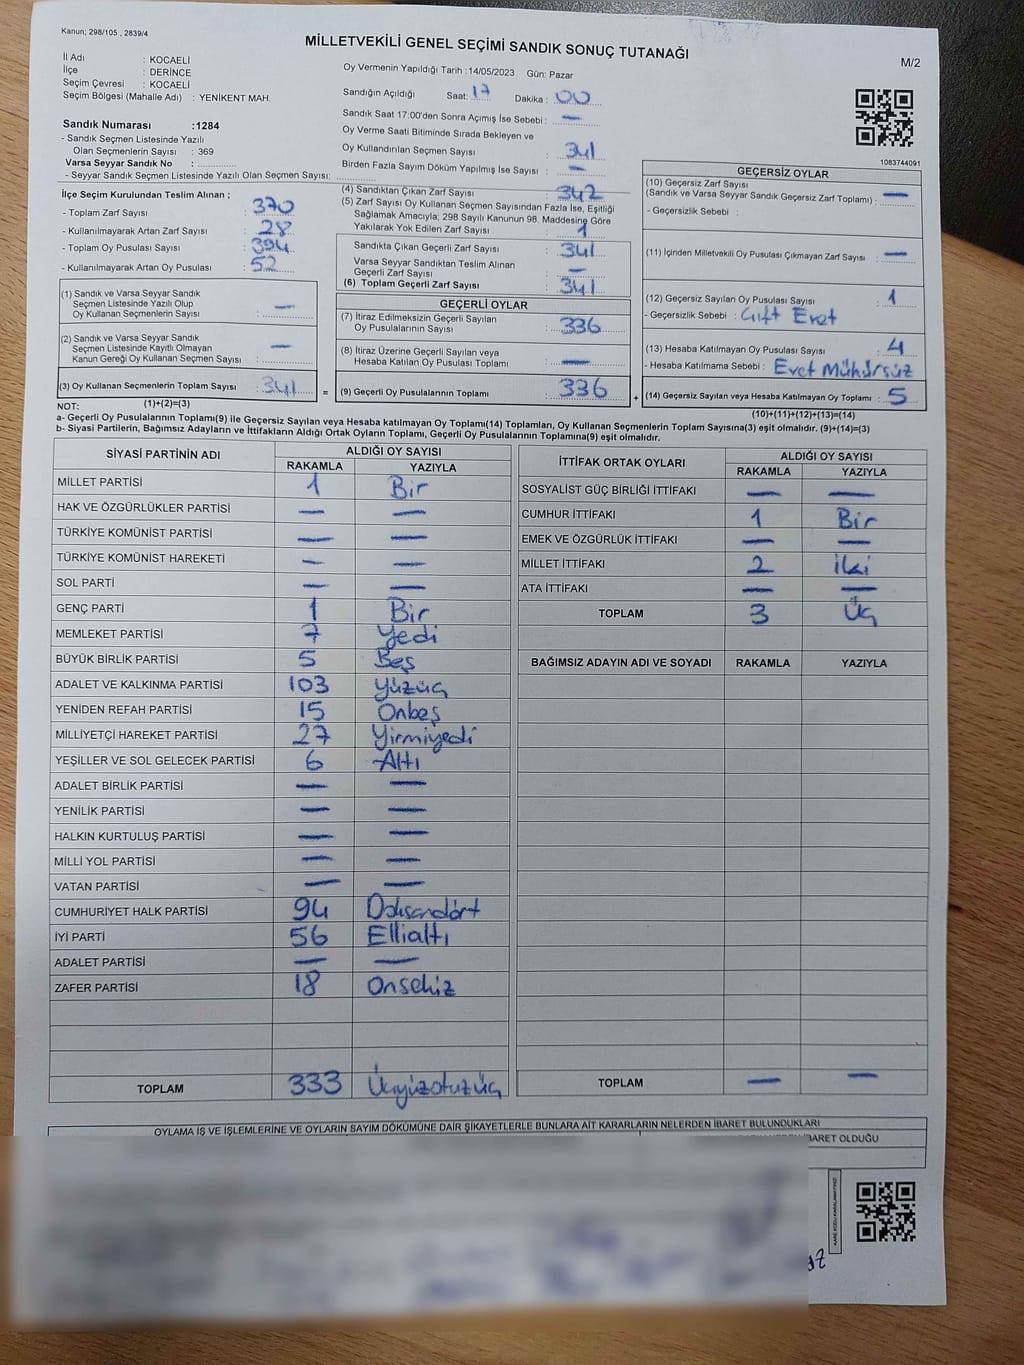 Kanun; 298/105 , 2839/4
MİLLETVEKİLİ GENEL SEÇİMİ SANDIK SONUÇ TUTANAĞI
M/2
İl Adı : KOCAELİ
İlçe : DERİNCE
Seçim Çevresi : KOCAELİ
Seçim Bölgesi (Mahalle Adı) : YENİKENT MAH.
Sandık Numarası :1284
- Sandık Seçmen Listesinde Yazılı
Olan Seçmenlerin Sayısı : 369
Varsa Seyyar Sandık No :
- Seyyar Sandık Seçmen Listesinde Yazılı Olan Seçmen Sayısı:
Oy Vermenin Yapıldığı Tarih :14/05/2023 Gün: Pazar
Sandığın Açıldığı Saat: 17 Dakika : 00
Sandık Saat 17:00'den Sonra Açımış İse Sebebi : —
Oy Verme Saati Bitiminde Sırada Bekleyen ve
Oy Kullandırılan Seçmen Sayısı : 341
Birden Fazla Sayım Döküm Yapılmış İse Sayısı : —
1083744091
İlçe Seçim Kurulundan Teslim Alınan ;
- Toplam Zarf Sayısı : 370
- Kullanılmayarak Artan Zarf Sayısı : 28
- Toplam Oy Pusulası Sayısı : 394
- Kullanılmayarak Artan Oy Pusulası : 52
(1) Sandık ve Varsa Seyyar Sandık
Seçmen Listesinde Yazılı Olup
Oy Kullanan Seçmenlerin Sayısı : —
(2) Sandık ve Varsa Seyyar Sandık
Seçmen Listesinde Kayıtlı Olmayan
Kanun Gereği Oy Kullanan Seçmen Sayısı : —
(3) Oy Kullanan Seçmenlerin Toplam Sayısı : 341
(1)+(2)=(3)
(4) Sandıktan Çıkan Zarf Sayısı : 342
(5) Zarf Sayısı Oy Kullanan Seçmen Sayısından Fazla İse, Eşitliği
Sağlamak Amacıyla; 298 Sayılı Kanunun 98. Maddesine Göre
Yakılarak Yok Edilen Zarf Sayısı : 1
Sandıkta Çıkan Geçerli Zarf Sayısı : 341
Varsa Seyyar Sandıktan Teslim Alınan
Geçerli Zarf Sayısı : —
(6) Toplam Geçerli Zarf Sayısı : 341
GEÇERLİ OYLAR
(7) İtiraz Edilmeksizin Geçerli Sayılan
Oy Pusulalarının Sayısı : 336
(8) İtiraz Üzerine Geçerli Sayılan veya
Hesaba Katılan Oy Pusulası Toplamı : —
= (9) Geçerli Oy Pusulalarının Toplamı : 336 +
GEÇERSİZ OYLAR
(10) Geçersiz Zarf Sayısı
(Sandık ve Varsa Seyyar Sandık Geçersiz Zarf Toplamı) : —
- Geçersizlik Sebebi :
(11) İçinden Milletvekili Oy Pusulası Çıkmayan Zarf Sayısı : —
(12) Geçersiz Sayılan Oy Pusulası Sayısı : 1
- Geçersizlik Sebebi : Çift Evet
(13) Hesaba Katılmayan Oy Pusulası Sayısı : 4
- Hesaba Katılmama Sebebi : Evet Mühürsüz
(14) Geçersiz Sayılan veya Hesaba Katılmayan Oy Toplamı : 5
(10)+(11)+(12)+(13)=(14)
NOT:
a- Geçerli Oy Pusulalarının Toplamı(9) ile Geçersiz Sayılan veya Hesaba katılmayan Oy Toplamı(14) Toplamları, Oy Kullanan Seçmenlerin Toplam Sayısına(3) eşit olmalıdır. (9)+(14)=(3)
b- Siyasi Partilerin, Bağımsız Adayların ve İttifakların Aldığı Ortak Oyların Toplamı, Geçerli Oy Pusulalarının Toplamına(9) eşit olmalıdır.
SİYASİ PARTİNİN ADI ALDIĞI OY SAYISI
RAKAMLA YAZIYLA
MİLLET PARTİSİ 1 Bir
HAK VE ÖZGÜRLÜKLER PARTİSİ — —
TÜRKİYE KOMÜNİST PARTİSİ — —
TÜRKİYE KOMÜNİST HAREKETİ — —
SOL PARTİ — —
GENÇ PARTİ 1 Bir
MEMLEKET PARTİSİ 7 Yedi
BÜYÜK BİRLİK PARTİSİ 5 Beş
ADALET VE KALKINMA PARTİSİ 103 Yüzüç
YENİDEN REFAH PARTİSİ 15 Onbeş
MİLLİYETÇİ HAREKET PARTİSİ 27 Yirmiyedi
YEŞİLLER VE SOL GELECEK PARTİSİ 6 Altı
ADALET BİRLİK PARTİSİ — —
YENİLİK PARTİSİ — —
HALKIN KURTULUŞ PARTİSİ — —
MİLLİ YOL PARTİSİ — —
VATAN PARTİSİ — —
CUMHURİYET HALK PARTİSİ 94 Doksandört
İYİ PARTİ 56 Ellialtı
ADALET PARTİSİ — —
ZAFER PARTİSİ 18 Onsekiz
TOPLAM 333 Üçyüzotuzüç
İTTİFAK ORTAK OYLARI ALDIĞI OY SAYISI
RAKAMLA YAZIYLA
SOSYALİST GÜÇ BİRLİĞİ İTTİFAKI — —
CUMHUR İTTİFAKI 1 Bir
EMEK VE ÖZGÜRLÜK İTTİFAKI — —
MİLLET İTTİFAKI 2 İki
ATA İTTİFAKI — —
TOPLAM 3 Üç
BAĞIMSIZ ADAYIN ADI VE SOYADI RAKAMLA YAZIYLA
TOPLAM — —
OYLAMA İŞ VE İŞLEMLERİNE VE OYLARIN SAYIM DÖKÜMÜNE DAİR ŞİKAYETLERLE BUNLARA AİT KARARLARIN NELERDEN İBARET BULUNDUKLARI
İBARET OLDUĞU